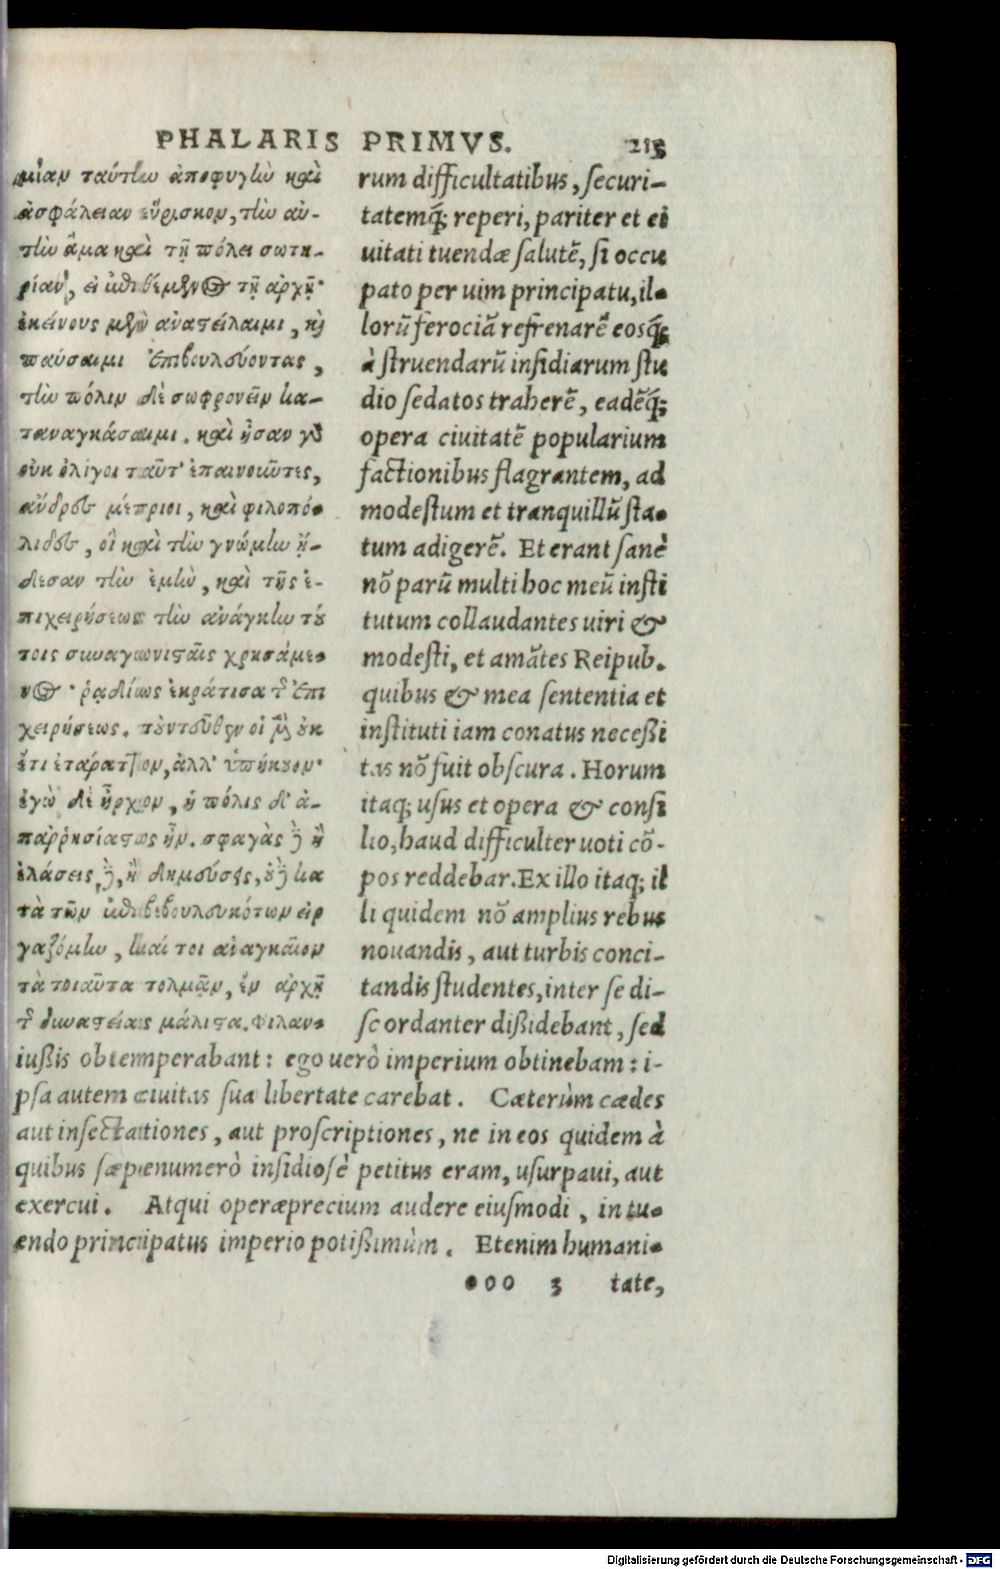 PHALARIS PRIMVS. 215
μίαν ταύτην ἀποφυγὴν καὶ
ἀσφάλειαν εὕρισκον, τὴν αὐ-
τὴν ἅμα καὶ τῇ πόλει σωτη-
ρίαν, εἰ ἐπιθέμενος τῇ ἀρχῇ·
ἐκείνους μὲν ἀναστείλαιμι, καὶ
παύσαιμι ἐπιβουλεύοντας,
τὴν πόλιν δὲ σωφρονεῖν κα-
ταναγκάσαιμι. καὶ ἦσαν γὰρ
οὐκ ὀλίγοι ταῦτ' ἐπαινοῦντες,
ἄνδρες μέτριοι, καὶ φιλοπό-
λιδες, οἳ καὶ τὴν γνώμην ᾔ-
δεσαν τὴν ἐμὴν, καὶ τῆς ἐ-
πιχειρήσεως τὴν ἀνάγκην τού
τοις συναγωνισταῖς χρησάμε-
νος· ῥᾳδίως ἐκράτησα τῆς ἐπι
χειρήσεως. τοὐντεῦθεν οἱ μὲν οὐκ
ἔτι ἐταράττον, ἀλλ' ὑπήκουον·
ἐγὼ δὲ ἦρχον, ἡ πόλις δ' ἀ-
παῤῥησίαστος ἦν. σφαγὰς δὲ ἢ
ἐλάσεις, ἢ δημεύσεις, οὐδὲ κα
τὰ τῶν ἐπιβεβουλευκότων εἰρ
γαζόμην, καί τοι ἀναγκαῖον
τὰ τοιαῦτα τολμᾷν, ἐν ἀρχῇ
τῆς δυναστείας μάλιστα. Φιλαν-
rum difficultatibus, securi-
tatemq́; reperi, pariter et ci
uitati tuendæ salutẽ, si occu
pato per uim principatu, il-
lorũ ferociã refrenarẽ eosq́;
à struendarũ insidiarum stu
dio sedatos traherẽ, eadẽq́;
opera ciuitatẽ popularium
factionibus flagrantem, ad
modestum et tranquillũ sta-
tum adigerẽ. Et erant sanè
nõ parũ multi hoc meũ insti
tutum collaudantes uiri &
modesti, et amãtes Reipub.
quibus & mea sententia et
instituti iam conatus necessi
tas nõ fuit obscura. Horum
itaq; usus et opera & consi
lio, haud difficulter uoti cõ-
pos reddebar. Ex illo itaq; il
li quidem nõ amplius rebus
nouandis, aut turbis conci-
tandis studentes, inter se di-
scordanter dissidebant, sed
iussis obtemperabant: ego uerò imperium obtinebam: i-
psa autem ciuitas sua libertate carebat. Cæterùm cædes
aut insectationes, aut proscriptiones, ne in eos quidem à
quibus sæpenumerò insidiosè petitus eram, usurpaui, aut
exercui. Atqui operæprecium audere eiusmodi, in tu-
endo principatus imperio potissimùm. Etenim humani-
ooo 3 tate,
Digitalisierung gefördert durch die Deutsche Forschungsgemeinschaft - DFG